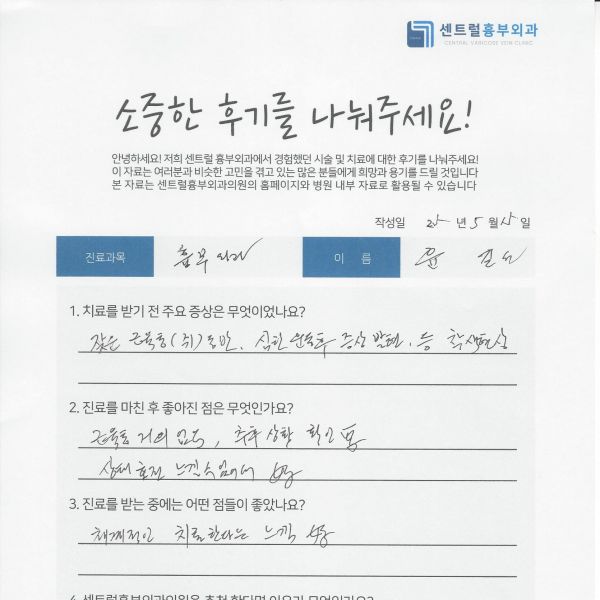 센트럴흉부외과
CENTRAL VARICOSE VEIN CLINIC
소중한 후기를 나눠주세요!
안녕하세요! 저희 센트럴 흉부외과에서 경험했던 시술 및 치료에 대한 후기를 나눠주세요!
이 자료는 여러분과 비슷한 고민을 겪고 있는 많은 분들에게 희망과 용기를 드릴 것입니다
본 자료는 센트럴흉부외과의원의 홈페이지와 병원 내부 자료로 활용될 수 있습니다
작성일 25년 5월 일
진료과목 흉부외과 이 름 윤
1. 치료를 받기 전 주요 증상은 무엇이었나요?
잦은 근육통(쥐)동반. 심한 운동후 증상 발현. 등
2. 진료를 마친 후 좋아진 점은 무엇인가요?
근육통 거의 없음, 추후 상황 확인
상태 호전 느낄수 있어서
3. 진료를 받는 중에는 어떤 점들이 좋았나요?
체계적인 치료한다는 느낌 받음
4. 센트럴흉부외과의원을 추천 한다면 이유가 무엇인가요?